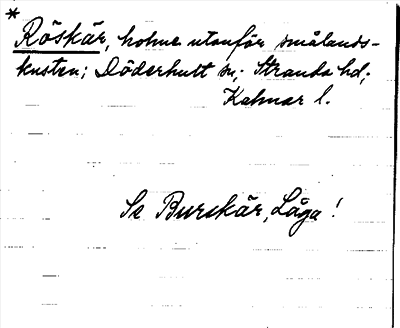 *
Röskär, holme utanför smålands-
kusten; Döderhult sn; Stranda hd;
Kalmar l.
Se Burskär, Låga!